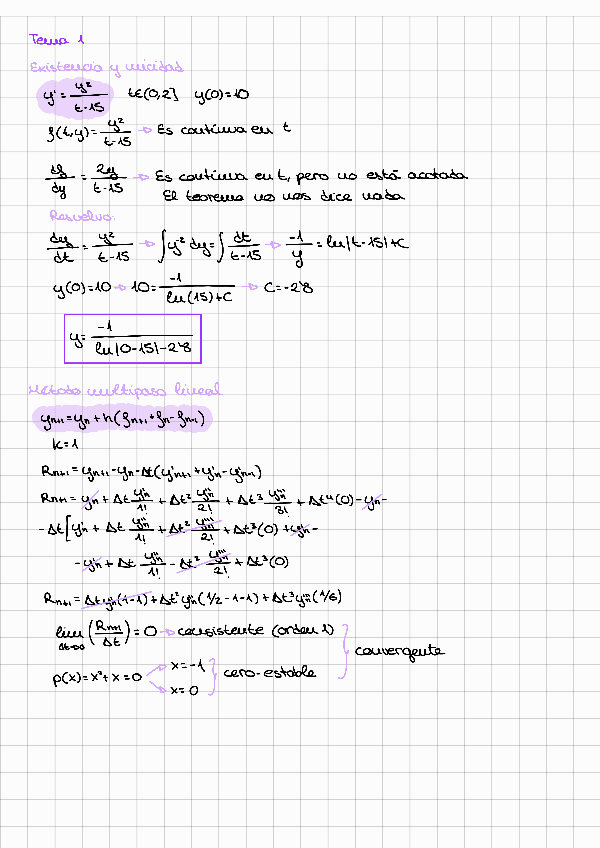 Tema 1
Existencia y unicidad
y' = y²/(t-15)   t∈(0,2]   y(0)=10
f(t,y) = y²/(t-15) → Es continua en t
df/dy = 2y/(t-15) → Es continua en t, pero no está acotada
El teorema no nos dice nada
Resuelvo:
dy/dt = y²/(t-15) → ∫y⁻² dy = ∫dt/(t-15) → -1/y = ln|t-15|+C
y(0)=10 → 10 = -1/(ln(15)+C) → C=-2'8
y = -1/(ln|0-15|-2'8)
Método multipaso lineal
yn+1 = yn + h(fn+1 + fn - fn-1)
K=1
Rn+1 = yn+1 - yn - Δt(y'n+1 + y'n - y'n-1)
Rn+1 = yn + Δt y'n/1! + Δt² y''n/2! + Δt³ y'''n/3! + Δt⁴(0) - yn -
- Δt[y'n + Δt y''n/1! + Δt² y'''n/2! + Δt³(0) + y'n -
- y'n + Δt y''n/1! - Δt² y'''n/2! + Δt³(0)
Rn+1 = Δt y'n(1-1) + Δt² y''n(1/2-1-1) + Δt³ y'''n(1/6)
lim Δt→0 (Rn+1/Δt) = 0 → consistente (orden 1)
convergente
p(x) = x²+x = 0
x=-1
x=0
cero-estable